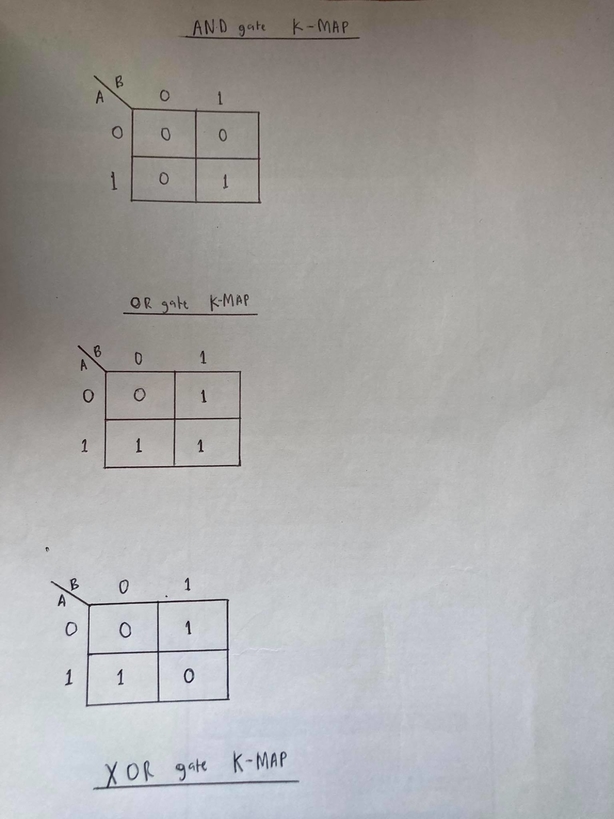 AND gate K-MAP
B
A 0 1
0 0 0
1 0 1
OR gate K-MAP
B
A 0 1
0 0 1
1 1 1
B
A 0 1
0 0 1
1 1 0
XOR gate K-MAP